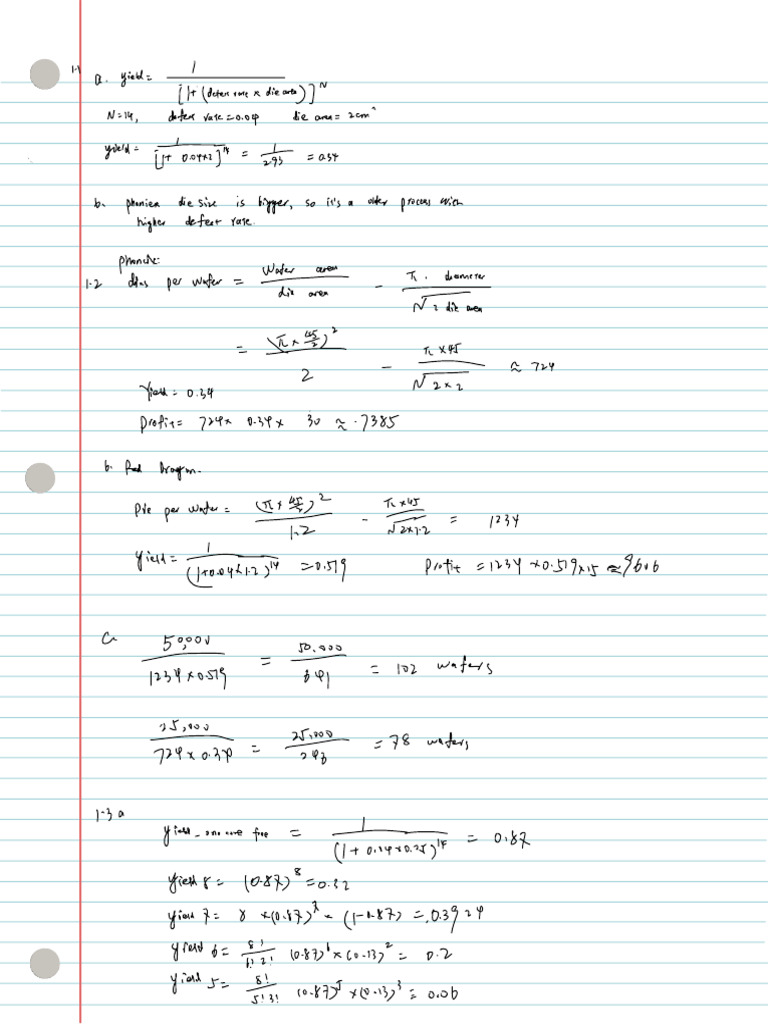 1.1
a. yield = 1 / [1 + (defect rate × die area)]^N
N=14, defect rate = 0.04 die area = 2cm²
yield = 1 / [1 + 0.04×2]^14 = 1 / 2.93 = 0.34
b. phoniex die size is bigger, so it's a older process with
higher defect rate.
Phoneix:
1.2 dies per wafer = wafer area / die area - π · diameter / √2 die area
= (π × 45/2)² / 2 - π × 45 / √2×2 ≈ 724
Yield = 0.34
Profit = 724 × 0.34 × 30 ≈ 7385
b. Red Dragon.
Die per wafer = (π × 45/2)² / 1.2 - π×45 / √2×1.2 = 1234
yield = 1 / (1+0.04×1.2)^14 = 0.519 Profit = 1234 × 0.519 × 15 ≈ 9606
C 50,000 / 1234×0.519 = 50,000 / 641 = 102 wafers
25,000 / 724 × 0.34 = 25,000 / 246 = 78 wafers
1.3 a
yield_one core free = 1 / (1 + 0.04×0.25)^14 = 0.87
yield 8 = (0.87)^8 = 0.32
yield 7 = 8 × (0.87)^7 × (1-0.87) = 0.3924
yield 6 = 8! / 6! 2! (0.87)^6 × (0.13)^2 = 0.2
yield 5 = 8! / 5! 3! (0.87)^5 × (0.13)^3 = 0.06